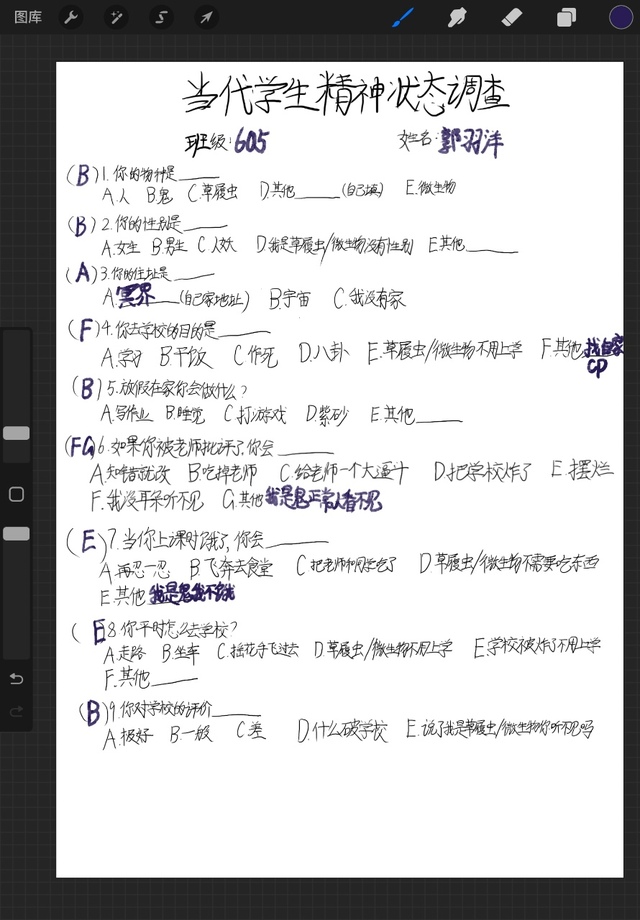 图库
当代学生精神状态调查
班级:605 姓名:郭羽沣
(B)1.你的物种是____
A.人 B.鬼 C.草履虫 D.其他____(自己填) E.微生物
(B)2.你的性别是____
A.女生 B.男生 C.人妖 D.我是草履虫/微生物没有性别 E.其他____
(A)3.你的住址是____
A.冥界(自己家地址) B.宇宙 C.我没有家
(F)4.你去学校的目的是____
A.学习 B.干饭 C.作死 D.八卦 E.草履虫/微生物不用上学 F.其他找自家
CP
(B)5.放假在家你会做什么?
A.写作业 B.睡觉 C.打游戏 D.紫砂 E.其他____
(FG)6.如果你被老师批评了,你会____
A.知错就改 B.吃掉老师 C.给老师一个大逼斗 D.把学校炸了 E.摆烂
F.我没耳朵听不见 G.其他我是鬼正常人看不见
(E)7.当你上课时饿了,你会____
A.再忍一忍 B.飞奔去食堂 C.把老师和同学吃了 D.草履虫/微生物不需要吃东西
E.其他我是鬼我不饿
(E8.你平时怎么去学校?
A.走路 B.坐车 C.摇花手飞过去 D.草履虫/微生物不用上学 E.学校被炸了不用上学
F.其他____
(B)9.你对学校的评价____
A.极好 B.一般 C.差 D.什么破学校 E.说了我是草履虫/微生物你听不见吗